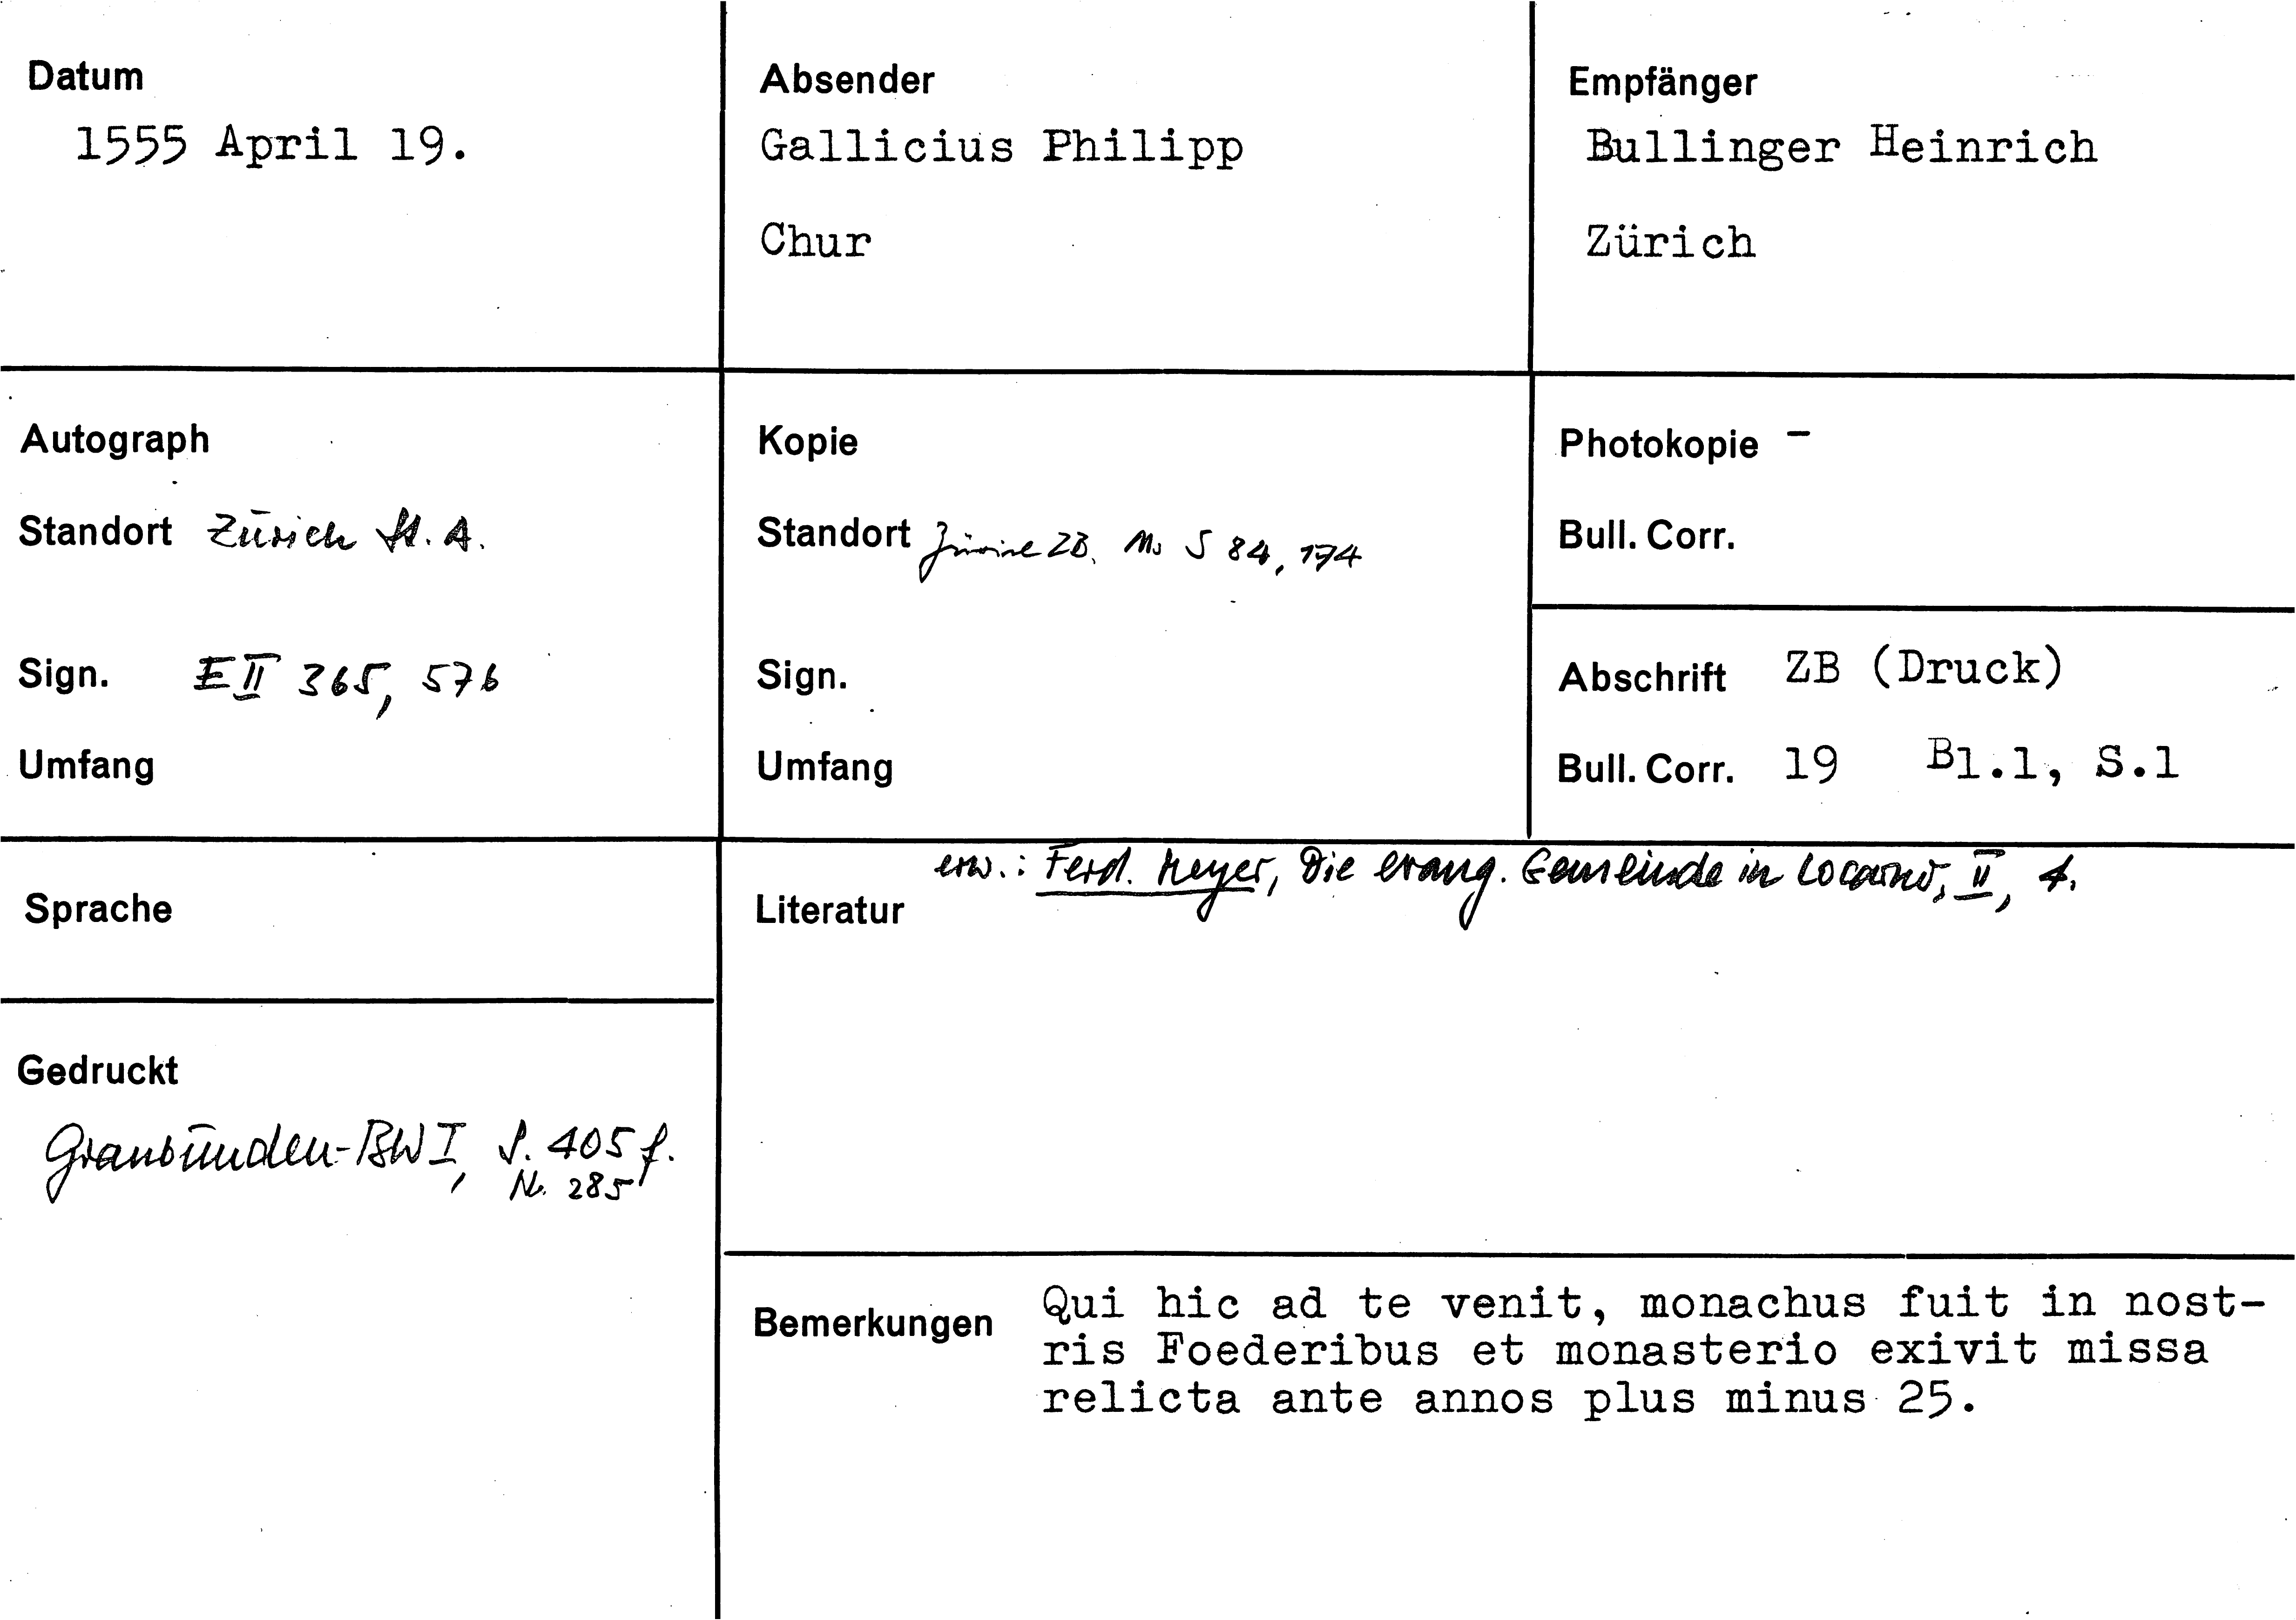 Datum
1555 April 19.
Absender
Gallicius Philipp
Chur
Empfänger
Bullinger Heinrich
Zürich
Autograph
Standort Zürich St. A.
Sign. E II 365, 576
Umfang
Kopie
Standort Zürich ZB. Ms S 84, 174
Sign.
Umfang
Photokopie -
Bull. Corr.
Abschrift ZB (Druck)
Bull. Corr. 19 Bl.1, S.1
Sprache
Gedruckt
Graubünden-BW I, S. 405 f.
Nr. 285
erw.: Ferd. Meyer, Die evang. Gemeinde in Locarno, II, 4.
Literatur
Bemerkungen Qui hic ad te venit, monachus fuit in nost-
ris Foederibus et monasterio exivit missa
relicta ante annos plus minus 25.